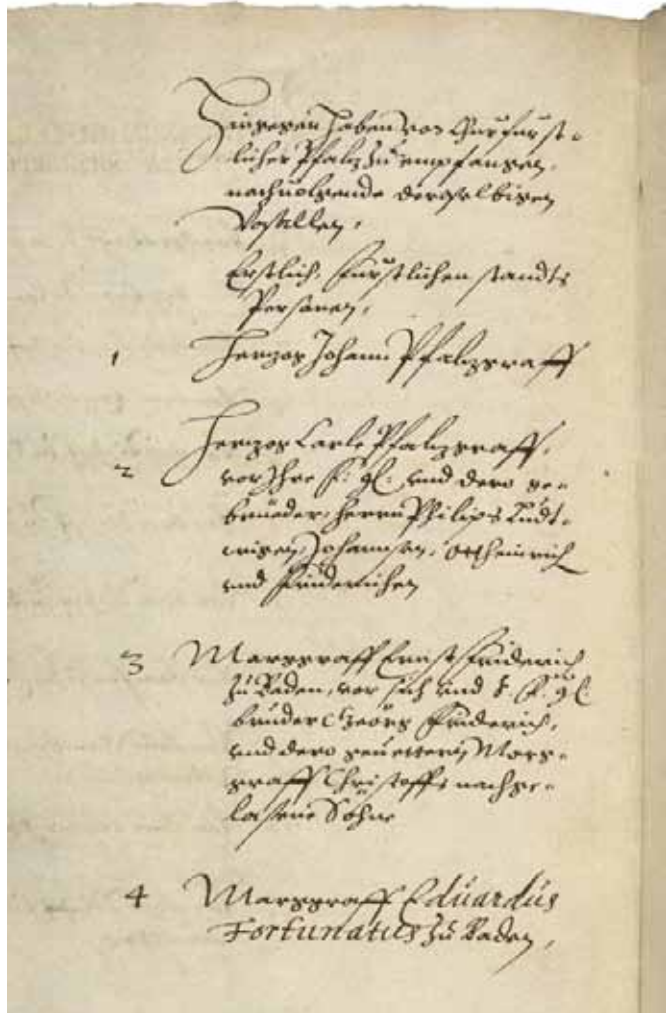 Hingegen haben von Churfürst-
licher Pfaltz zu empfangen,
nachuolgende deroselbigen
Vasallen,
Erstlich, fürstlichen standts
Personen,
1 Hertzog Johann Pfaltzgraff
Hertzog Carle Pfaltzgraff,
2 vor Ihre f: gl: vnd dero ge-
brueder, herrn Philips Ludt-
wigen, Johannsen, Ottheinrich
vnd Friderichen
3 Marggraff Ernst Friderich
zu Baden, vor sich vnd f: gl:
bruder Geörg Friderich,
vnd dero geuettern Marg-
graff Christoffs nachge-
lasene Söhne
4 Marggraff Eduardus
Fortunatus zu Baden,